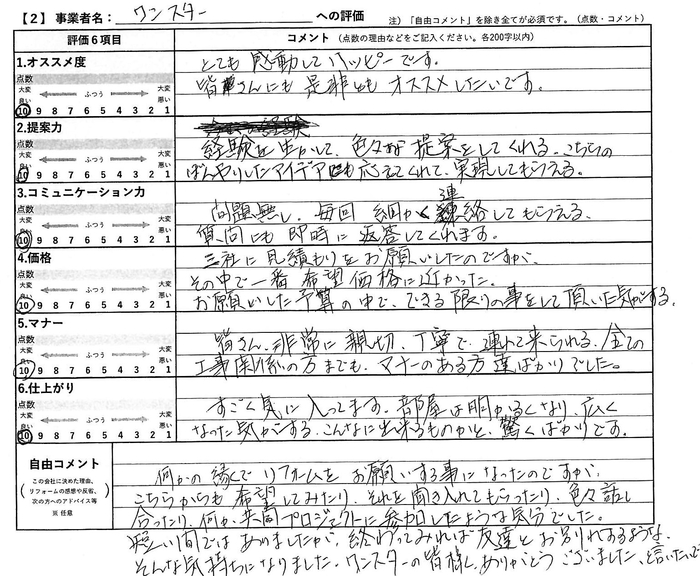 【2】事業者名： ワンスター への評価 注）「自由コメント」を除き全てが必須です。（点数・コメント）
評価６項目 コメント（点数の理由などをご記入ください。各200字以内）
1.オススメ度
点数
大変良い ふつう 大変悪い
10 9 8 7 6 5 4 3 2 1
とても感動してハッピーです。
皆さんにも是非ともオススメしたいです。
2.提案力
点数
大変良い ふつう 大変悪い
10 9 8 7 6 5 4 3 2 1
経験を生かして、色々な提案をしてくれる。こちらの
ぼんやりしたアイデアにも応えてくれて、実現してもらえる。
3.コミュニケーション力
点数
大変良い ふつう 大変悪い
10 9 8 7 6 5 4 3 2 1
問題無し、毎回細かく連絡してもらえる、
質問にも即時に返答してくれます。
4.価格
点数
大変良い ふつう 大変悪い
10 9 8 7 6 5 4 3 2 1
三社に見積もりをお願いしたのですが、
その中で一番希望価格に近かった。
お願いした予算の中で、できる限りの事をして頂いた気がする。
5.マナー
点数
大変良い ふつう 大変悪い
10 9 8 7 6 5 4 3 2 1
皆さん、非常に親切、丁寧で、連れて来られる、全ての
工事関係の方までも、マナーのある方達ばかりでした。
6.仕上がり
点数
大変良い ふつう 大変悪い
10 9 8 7 6 5 4 3 2 1
すごく気に入ってます。部屋は明かるくなり、広く
なった気がする。こんなに出来るものかと、驚くばかりです。
自由コメント
この会社に決めた理由、
リフォームの感想や反省、
次の方へのアドバイス等
※ 任意
何かの縁でリフォームをお願いする事になったのですが、
こちらからも希望してみたり、それを聞き入れてもらったり、色々話し
合ったり、何か、共同プロジェクトに参加したような気分でした。
短い間ではありましたが、終わってみれば友達とお別れするような、
そんな気持ちになりました。ワンスターの皆様、ありがとうございました、と言いたいで